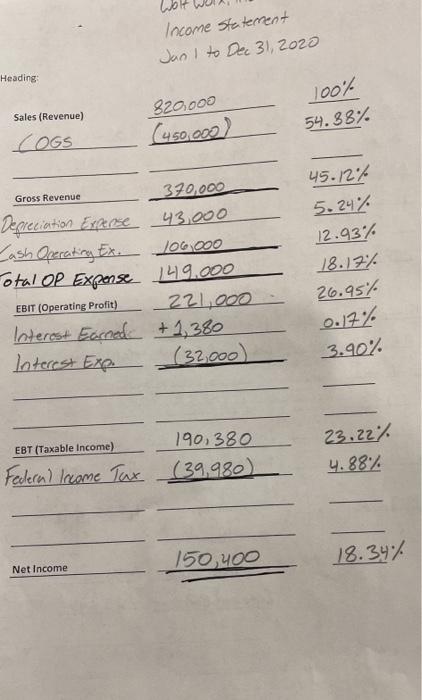 Income Statement
Jan 1 to Dec 31, 2020
Heading:
100%
Sales (Revenue) 820,000 54.88%
COGS (450,000)
Gross Revenue 370,000 45.12%
Depreciation Expense 43,000 5.24%
Cash Operating Ex. 106,000 12.93%
Total OP Expense 149,000 18.17%
EBIT (Operating Profit) 221,000 26.95%
Interest Earned +1,380 0.17%
Interest Exp. (32,000) 3.90%
EBT (Taxable Income) 190,380 23.22%
Federal Income Tax (39,980) 4.88%
Net Income 150,400 18.34%